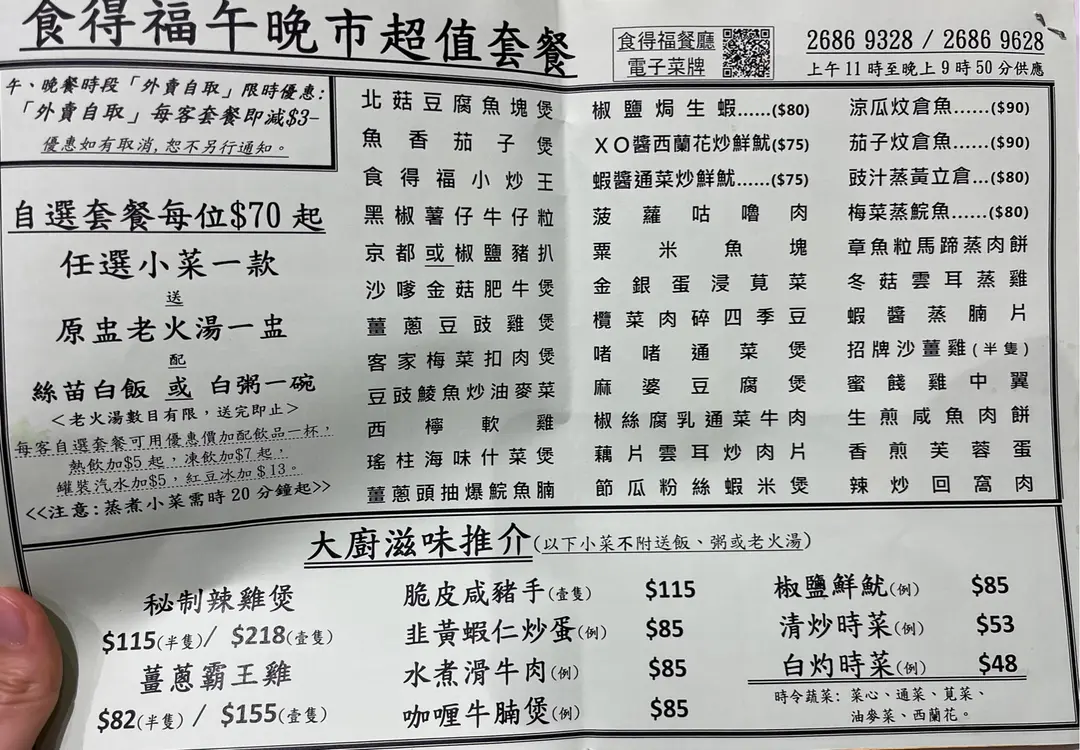 食得福午晚市超值套餐
食得福餐廳
電子菜牌
2686 9328 / 2686 9628
上午11時至晚上9時50分供應
午、晚餐時段「外賣自取」限時優惠:
「外賣自取」每客套餐即減$3-
優惠如有取消,恕不另行通知。
自選套餐每位$70起
任選小菜一款
送
原盅老火湯一盅
配
絲苗白飯 或 白粥一碗
<老火湯數目有限，送完即止>
每客自選套餐可用優惠價加配飲品一杯，
熱飲加$5起，凍飲加$7起，
罐裝汽水加$5，紅豆冰加$13。
<<注意:蒸煮小菜需時20分鐘起>>
北菇豆腐魚塊煲
魚香茄子煲
食得福小炒王
黑椒薯仔牛仔粒
京都或椒鹽豬扒
沙嗲金菇肥牛煲
薑蔥豆豉雞煲
客家梅菜扣肉煲
豆豉鯪魚炒油麥菜
西檸軟雞
瑤柱海味什菜煲
薑蔥頭抽爆鯇魚腩
椒鹽焗生蝦......($80)
XO醬西蘭花炒鮮魷($75)
蝦醬通菜炒鮮魷......($75)
菠蘿咕嚕肉
粟米魚塊
金銀蛋浸莧菜
欖菜肉碎四季豆
啫啫通菜煲
麻婆豆腐煲
椒絲腐乳通菜牛肉
藕片雲耳炒肉片
節瓜粉絲蝦米煲
涼瓜炆倉魚......($90)
茄子炆倉魚......($90)
豉汁蒸黃立倉...($80)
梅菜蒸鯇魚......($80)
章魚粒馬蹄蒸肉餅
冬菇雲耳蒸雞
蝦醬蒸腩片
招牌沙薑雞(半隻)
蜜餞雞中翼
生煎咸魚肉餅
香煎芙蓉蛋
辣炒回窩肉
大廚滋味推介(以下小菜不附送飯、粥或老火湯)
秘制辣雞煲
$115(半隻)/ $218(壹隻)
薑蔥霸王雞
$82(半隻) / $155(壹隻)
脆皮咸豬手(壹隻) $115
韭黃蝦仁炒蛋(例) $85
水煮滑牛肉(例) $85
咖喱牛腩煲(例) $85
椒鹽鮮魷(例) $85
清炒時菜(例) $53
白灼時菜(例) $48
時令蔬菜: 菜心、通菜、莧菜、
油麥菜、西蘭花。